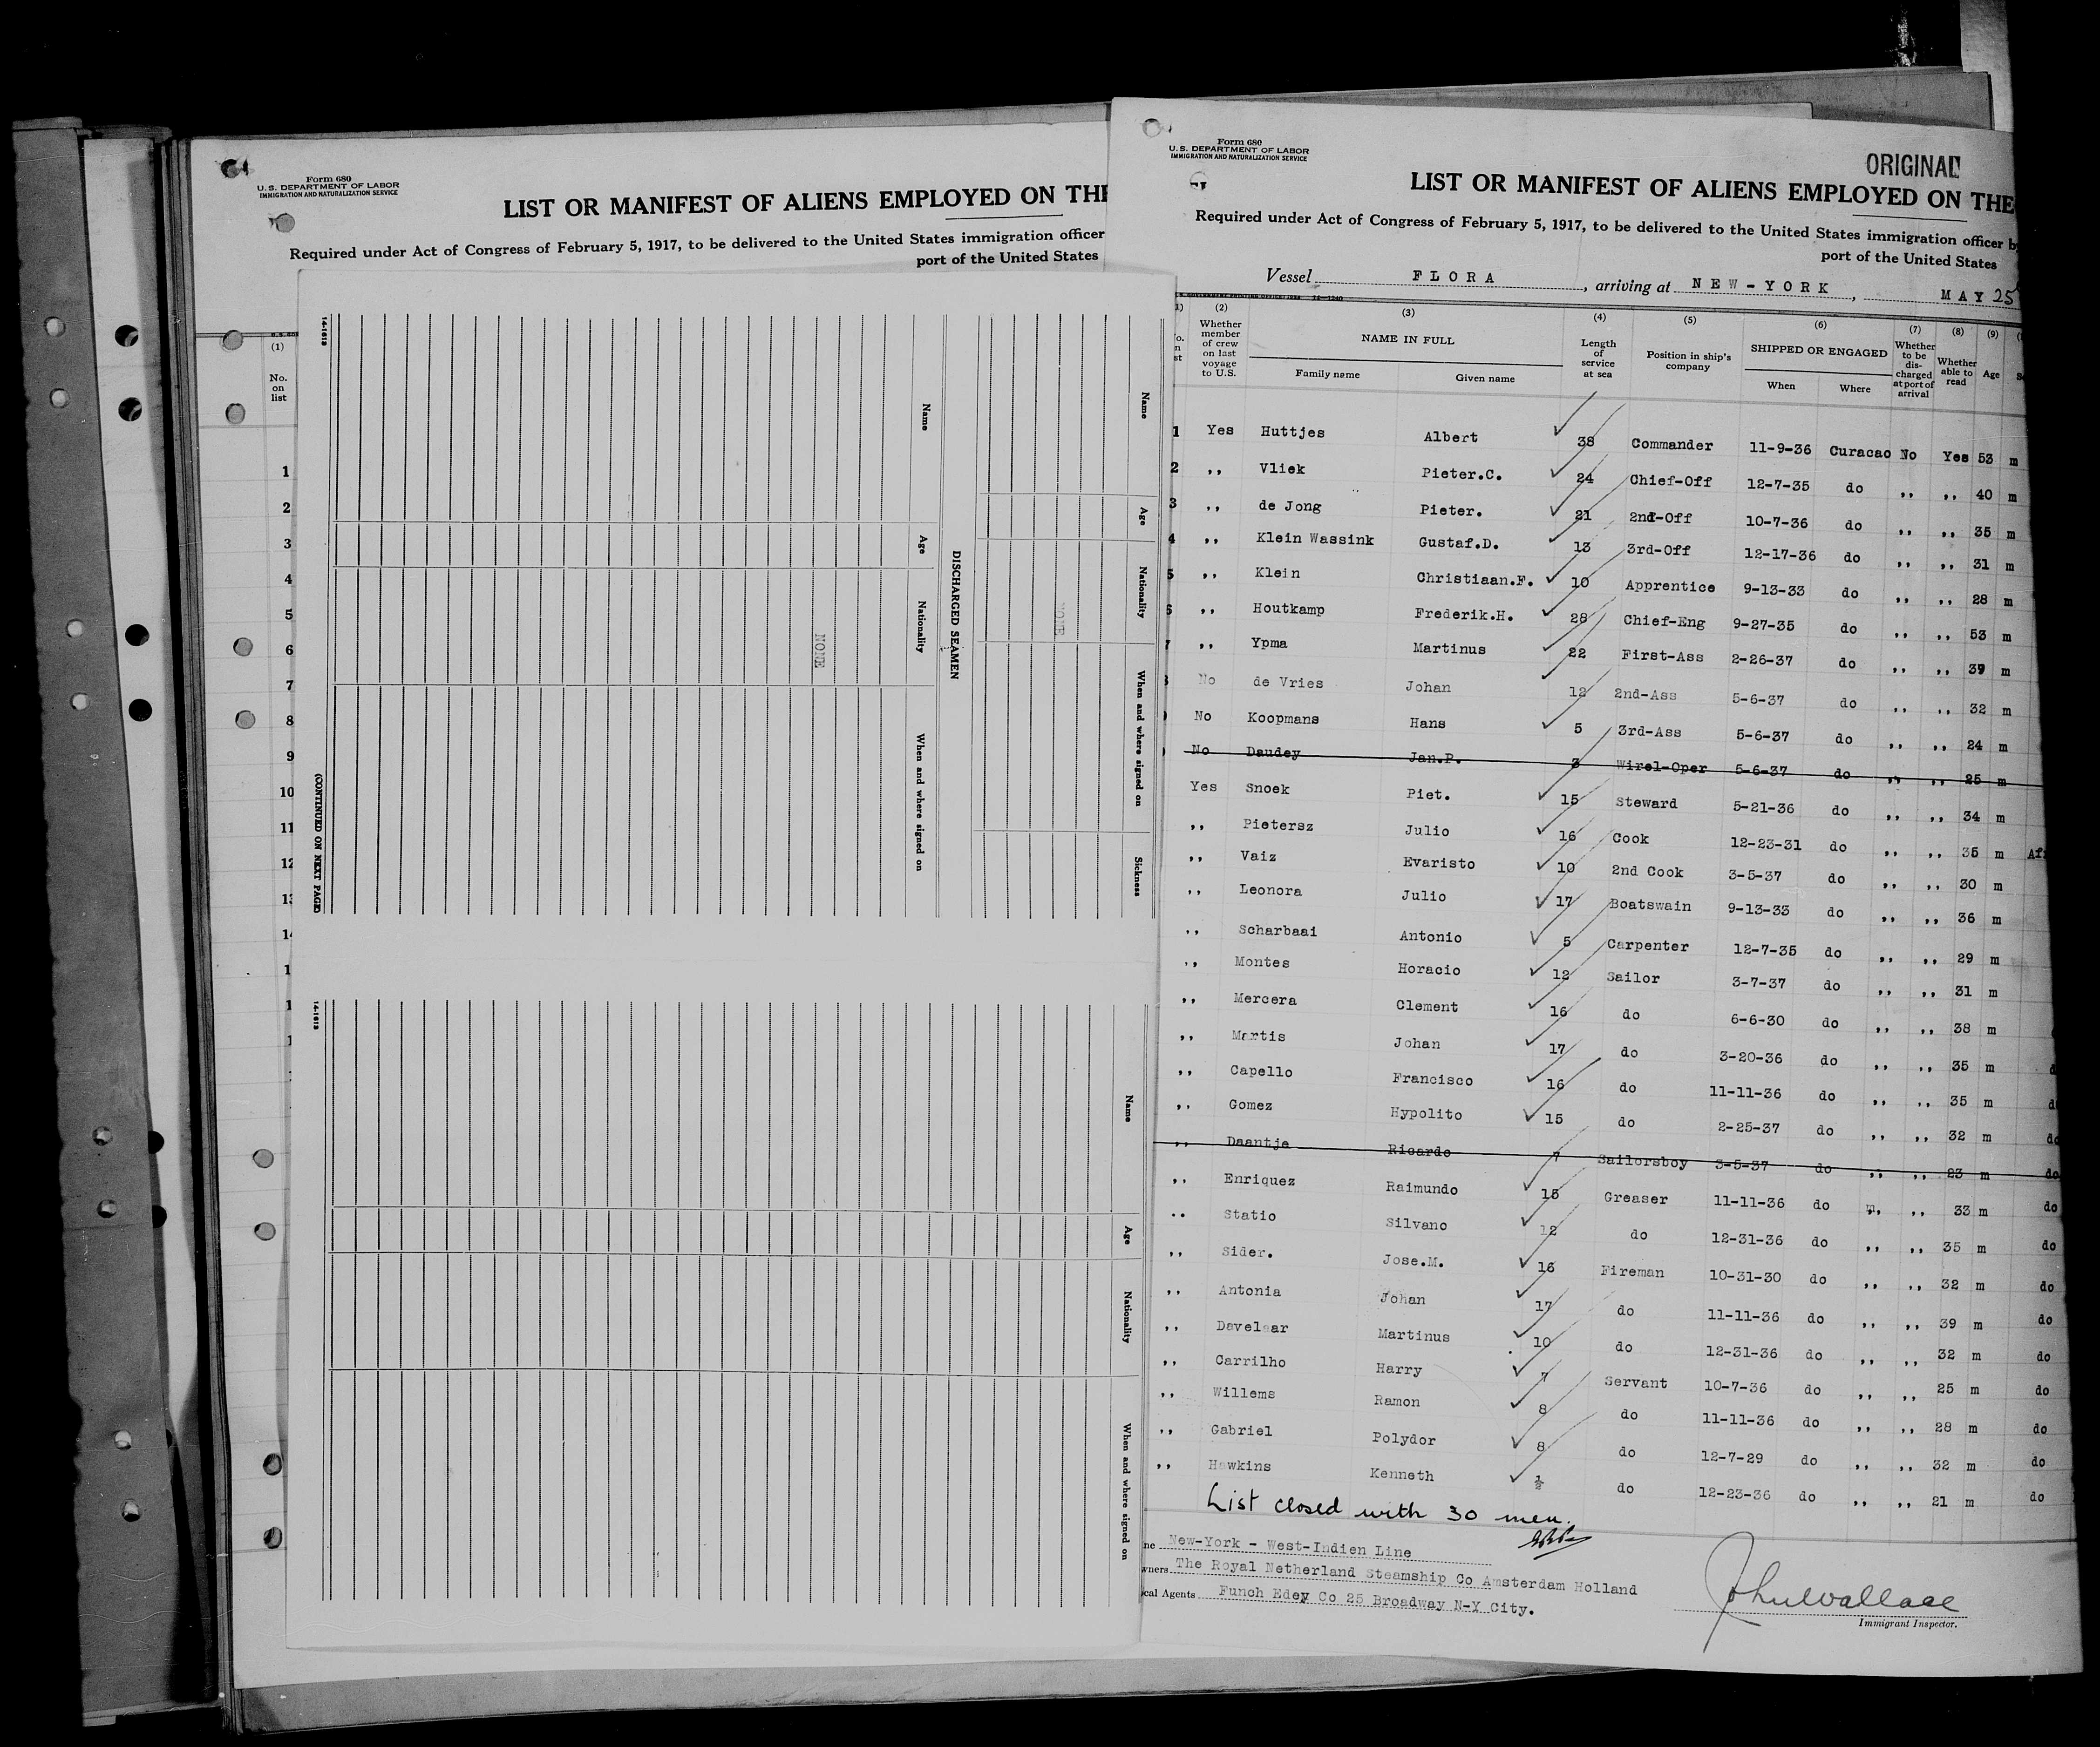 Form 680
U.S. DEPARTMENT OF LABOR
IMMIGRATION AND NATURALIZATION SERVICE
LIST OR MANIFEST OF ALIENS EMPLOYED ON THE
Required under Act of Congress of February 5, 1917, to be delivered to the United States immigration officer
port of the United States
(1)
No. on list
1
2
3
4
5
6
7
8
9
10
11
12
14-1613
Name Age Nationality When and where signed on Sickness
NONE
DISCHARGED SEAMEN
Name Age Nationality When and where signed on
NONE
(CONTINUED ON NEXT PAGE)
14-1613
Name Age Nationality When and where signed on
Form 680
U.S. DEPARTMENT OF LABOR
IMMIGRATION AND NATURALIZATION SERVICE
ORIGINAL
LIST OR MANIFEST OF ALIENS EMPLOYED ON THE
Required under Act of Congress of February 5, 1917, to be delivered to the United States immigration officer
port of the United States
Vessel FLORA, arriving at NEW-YORK, MAY 25
(2) (3) (4) (5) (6) (7) (8) (9)
Whether member of crew on last voyage to U.S. NAME IN FULL Family name Given name Length of service at sea Position in ship's company SHIPPED OR ENGAGED When Where Whether to be discharged at port of arrival Whether able to read Age
1 Yes Huttjes Albert 38 Commander 11-9-36 Curacao No Yes 53 m
2 ,, Vliek Pieter.C. 24 Chief-Off 12-7-35 do ,, ,, 40 m
3 ,, de Jong Pieter. 21 2nd-Off 10-7-36 do ,, ,, 35 m
4 ,, Klein Wassink Gustaf.D. 13 3rd-Off 12-17-36 do ,, ,, 31 m
5 ,, Klein Christiaan.F. 10 Apprentice 9-13-33 do ,, ,, 28 m
6 ,, Houtkamp Frederik.H. 28 Chief-Eng 9-27-35 do ,, ,, 53 m
7 ,, Ypma Martinus 22 First-Ass 2-26-37 do ,, ,, 39 m
No de Vries Johan 12 2nd-Ass 5-6-37 do ,, ,, 32 m
No Koopmans Hans 5 3rd-Ass 5-6-37 do ,, ,, 24 m
No Daudey Jan.P. 3 Wirel-Oper 5-6-37 do ,, ,, 25 m
Yes Snoek Piet. 15 Steward 5-21-36 do ,, ,, 34 m
,, Pietersz Julio 16 Cook 12-23-31 do ,, ,, 35 m
,, Vaiz Evaristo 10 2nd Cook 3-5-37 do ,, ,, 30 m
,, Leonora Julio 17 Boatswain 9-13-33 do ,, ,, 36 m
,, Scharbaai Antonio 5 Carpenter 12-7-35 do ,, ,, 29 m
,, Montes Horacio 12 Sailor 3-7-37 do ,, ,, 31 m
,, Mercera Clement 16 do 6-6-30 do ,, ,, 38 m
,, Martis Johan 17 do 3-20-36 do ,, ,, 35 m
,, Capello Francisco 16 do 11-11-36 do ,, ,, 35 m
,, Gomez Hypolito 15 do 2-25-37 do ,, ,, 32 m do
,, Daantje Ricardo 7 Sailorsboy 3-5-37 do ,, ,, 23 m do
,, Enriquez Raimundo 15 Greaser 11-11-36 do ,, ,, 33 m do
,, Statio Silvano 12 do 12-31-36 do ,, ,, 35 m do
,, Sider. Jose.M. 16 Fireman 10-31-30 do ,, ,, 32 m do
,, Antonia Johan 17 do 11-11-36 do ,, ,, 39 m do
,, Davelaar Martinus 10 do 12-31-36 do ,, ,, 32 m do
,, Carrilho Harry 7 Servant 10-7-36 do ,, ,, 25 m do
,, Willems Ramon 8 do 11-11-36 do ,, ,, 28 m do
,, Gabriel Polydor 8 do 12-7-29 do ,, ,, 32 m do
,, Hawkins Kenneth ½ do 12-23-36 do ,, ,, 21 m do
List closed with 30 men.
New-York - West-Indien Line
The Royal Netherland Steamship Co Amsterdam Holland
Agents Funch Edey Co 25 Broadway N-Y City.
John Wallace
Immigrant Inspector.